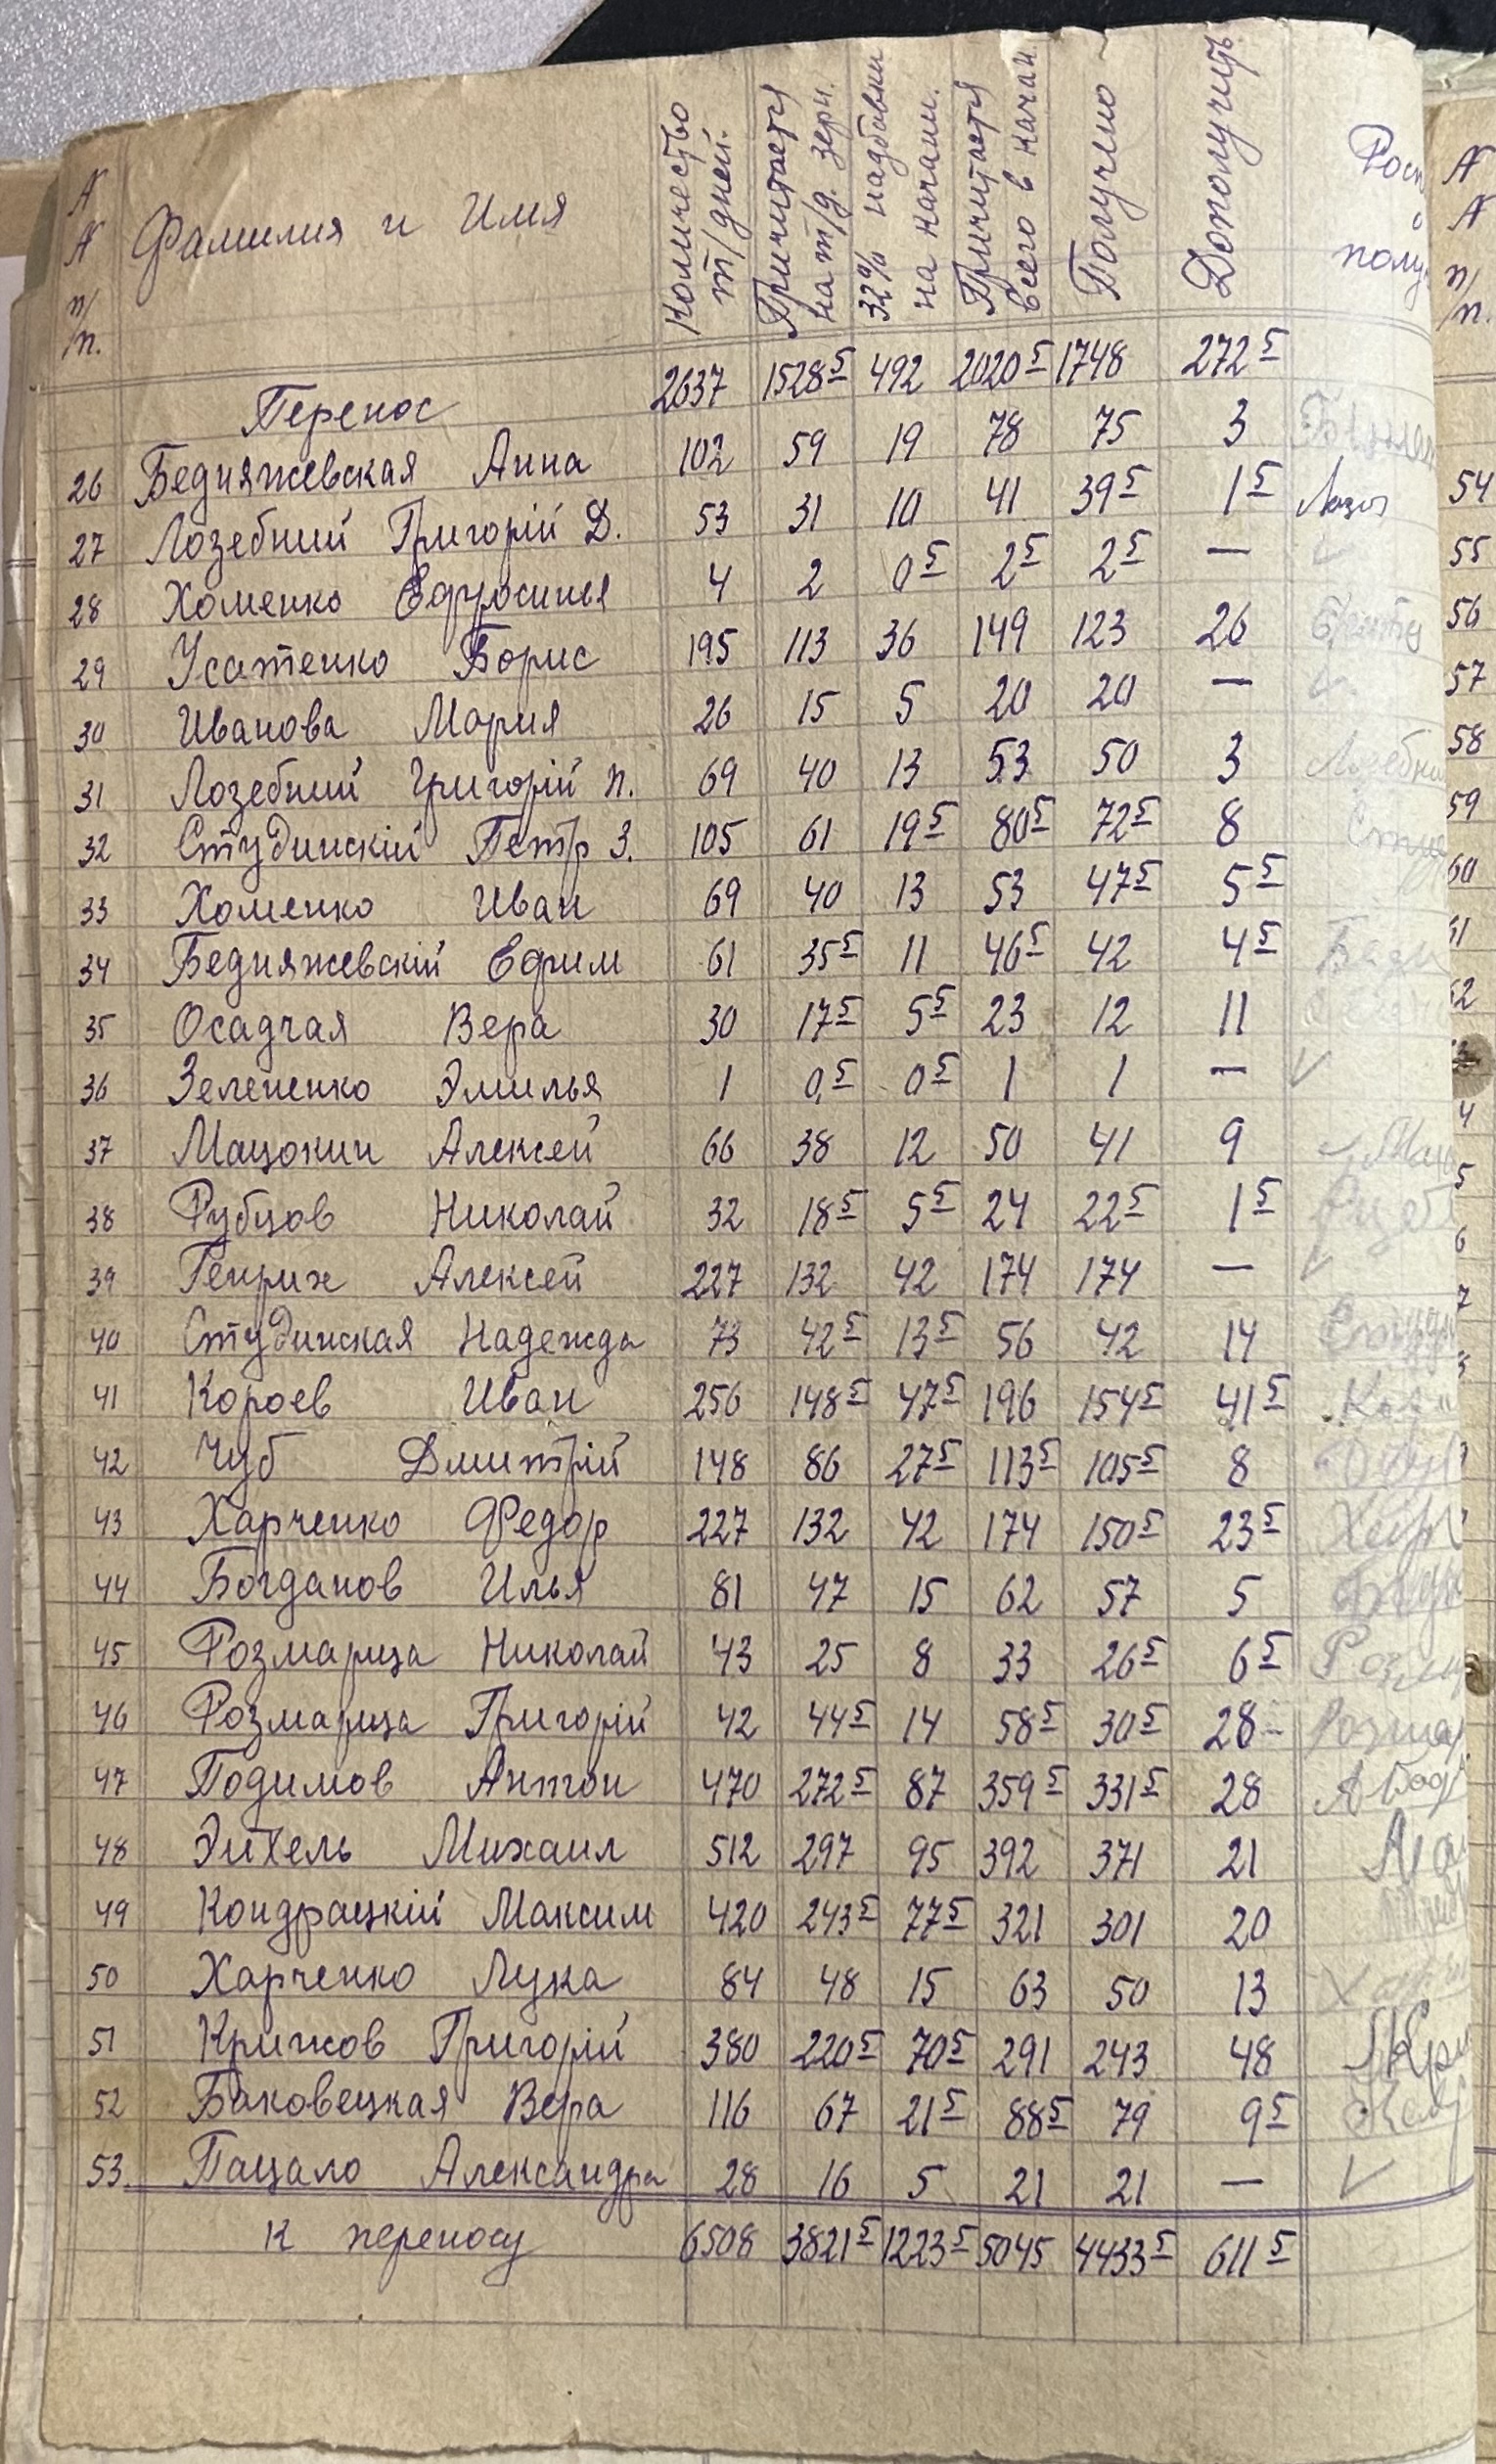 № № п/п. Фамилия и Имя Количество т/дней. Причитается на т/д. зерн. 32% надбавки на качан. Причитается всего в качан. Получено Дополучить
Перенос 2637 1528⁵ 492 2020⁵ 1748 272⁵
26 Бедняжевская Анна 102 59 19 78 75 3
27 Лозебний Григорій Д. 53 31 10 41 39⁵ 1⁵ Лозеб
28 Хоменко Ефросинья 4 2 0⁵ 2⁵ 2⁵ —
29 Усатенко Борис 195 113 36 149 123 26
30 Иванова Мария 26 15 5 20 20 —
31 Лозебний Григорій П. 69 40 13 53 50 3 Лозебни
32 Студинскій Петр З. 105 61 19⁵ 80⁵ 72⁵ 8
33 Хоменко Иван 69 40 13 53 47⁵ 5⁵
34 Бедняжевскій Ефим 61 35⁵ 11 46⁵ 42 4⁵
35 Осадчая Вера 30 17⁵ 5⁵ 23 12 11
36 Зелененко Эмилья 1 0,⁵ 0⁵ 1 1 —
37 Мацокин Алексей 66 38 12 50 41 9
38 Рубцов Николай 32 18⁵ 5⁵ 24 22⁵ 1⁵
39 Генрих Алексей 227 132 42 174 174 —
40 Студинская Надежда 73 42⁵ 13⁵ 56 42 14
41 Короев Иван 256 148⁵ 47⁵ 196 154⁵ 41⁵
42 Чуб Дмитрій 148 86 27⁵ 113⁵ 105⁵ 8
43 Харченко Федор 227 132 42 174 150⁵ 23⁵
44 Богданов Илья 81 47 15 62 57 5
45 Розмарица Николай 43 25 8 33 26⁵ 6⁵
46 Розмарица Григорій 42 44⁵ 14 58⁵ 30⁵ 28
47 Подимов Антон 470 272⁵ 87 359⁵ 331⁵ 28
48 Эихель Михаил 512 297 95 392 371 21
49 Кондрацкій Максим 420 243⁵ 77⁵ 321 301 20
50 Харченко Лука 84 48 15 63 50 13
51 Крижов Григорій 380 220⁵ 70⁵ 291 243 48
52 Баковецкая Вера 116 67 21⁵ 88⁵ 79 9⁵
53. Пацало Александра 28 16 5 21 21 —
К переносу 6508 3821⁵ 1223⁵ 5045 4433⁵ 611⁵
№ № п/п.
54
55
56
57
58
59